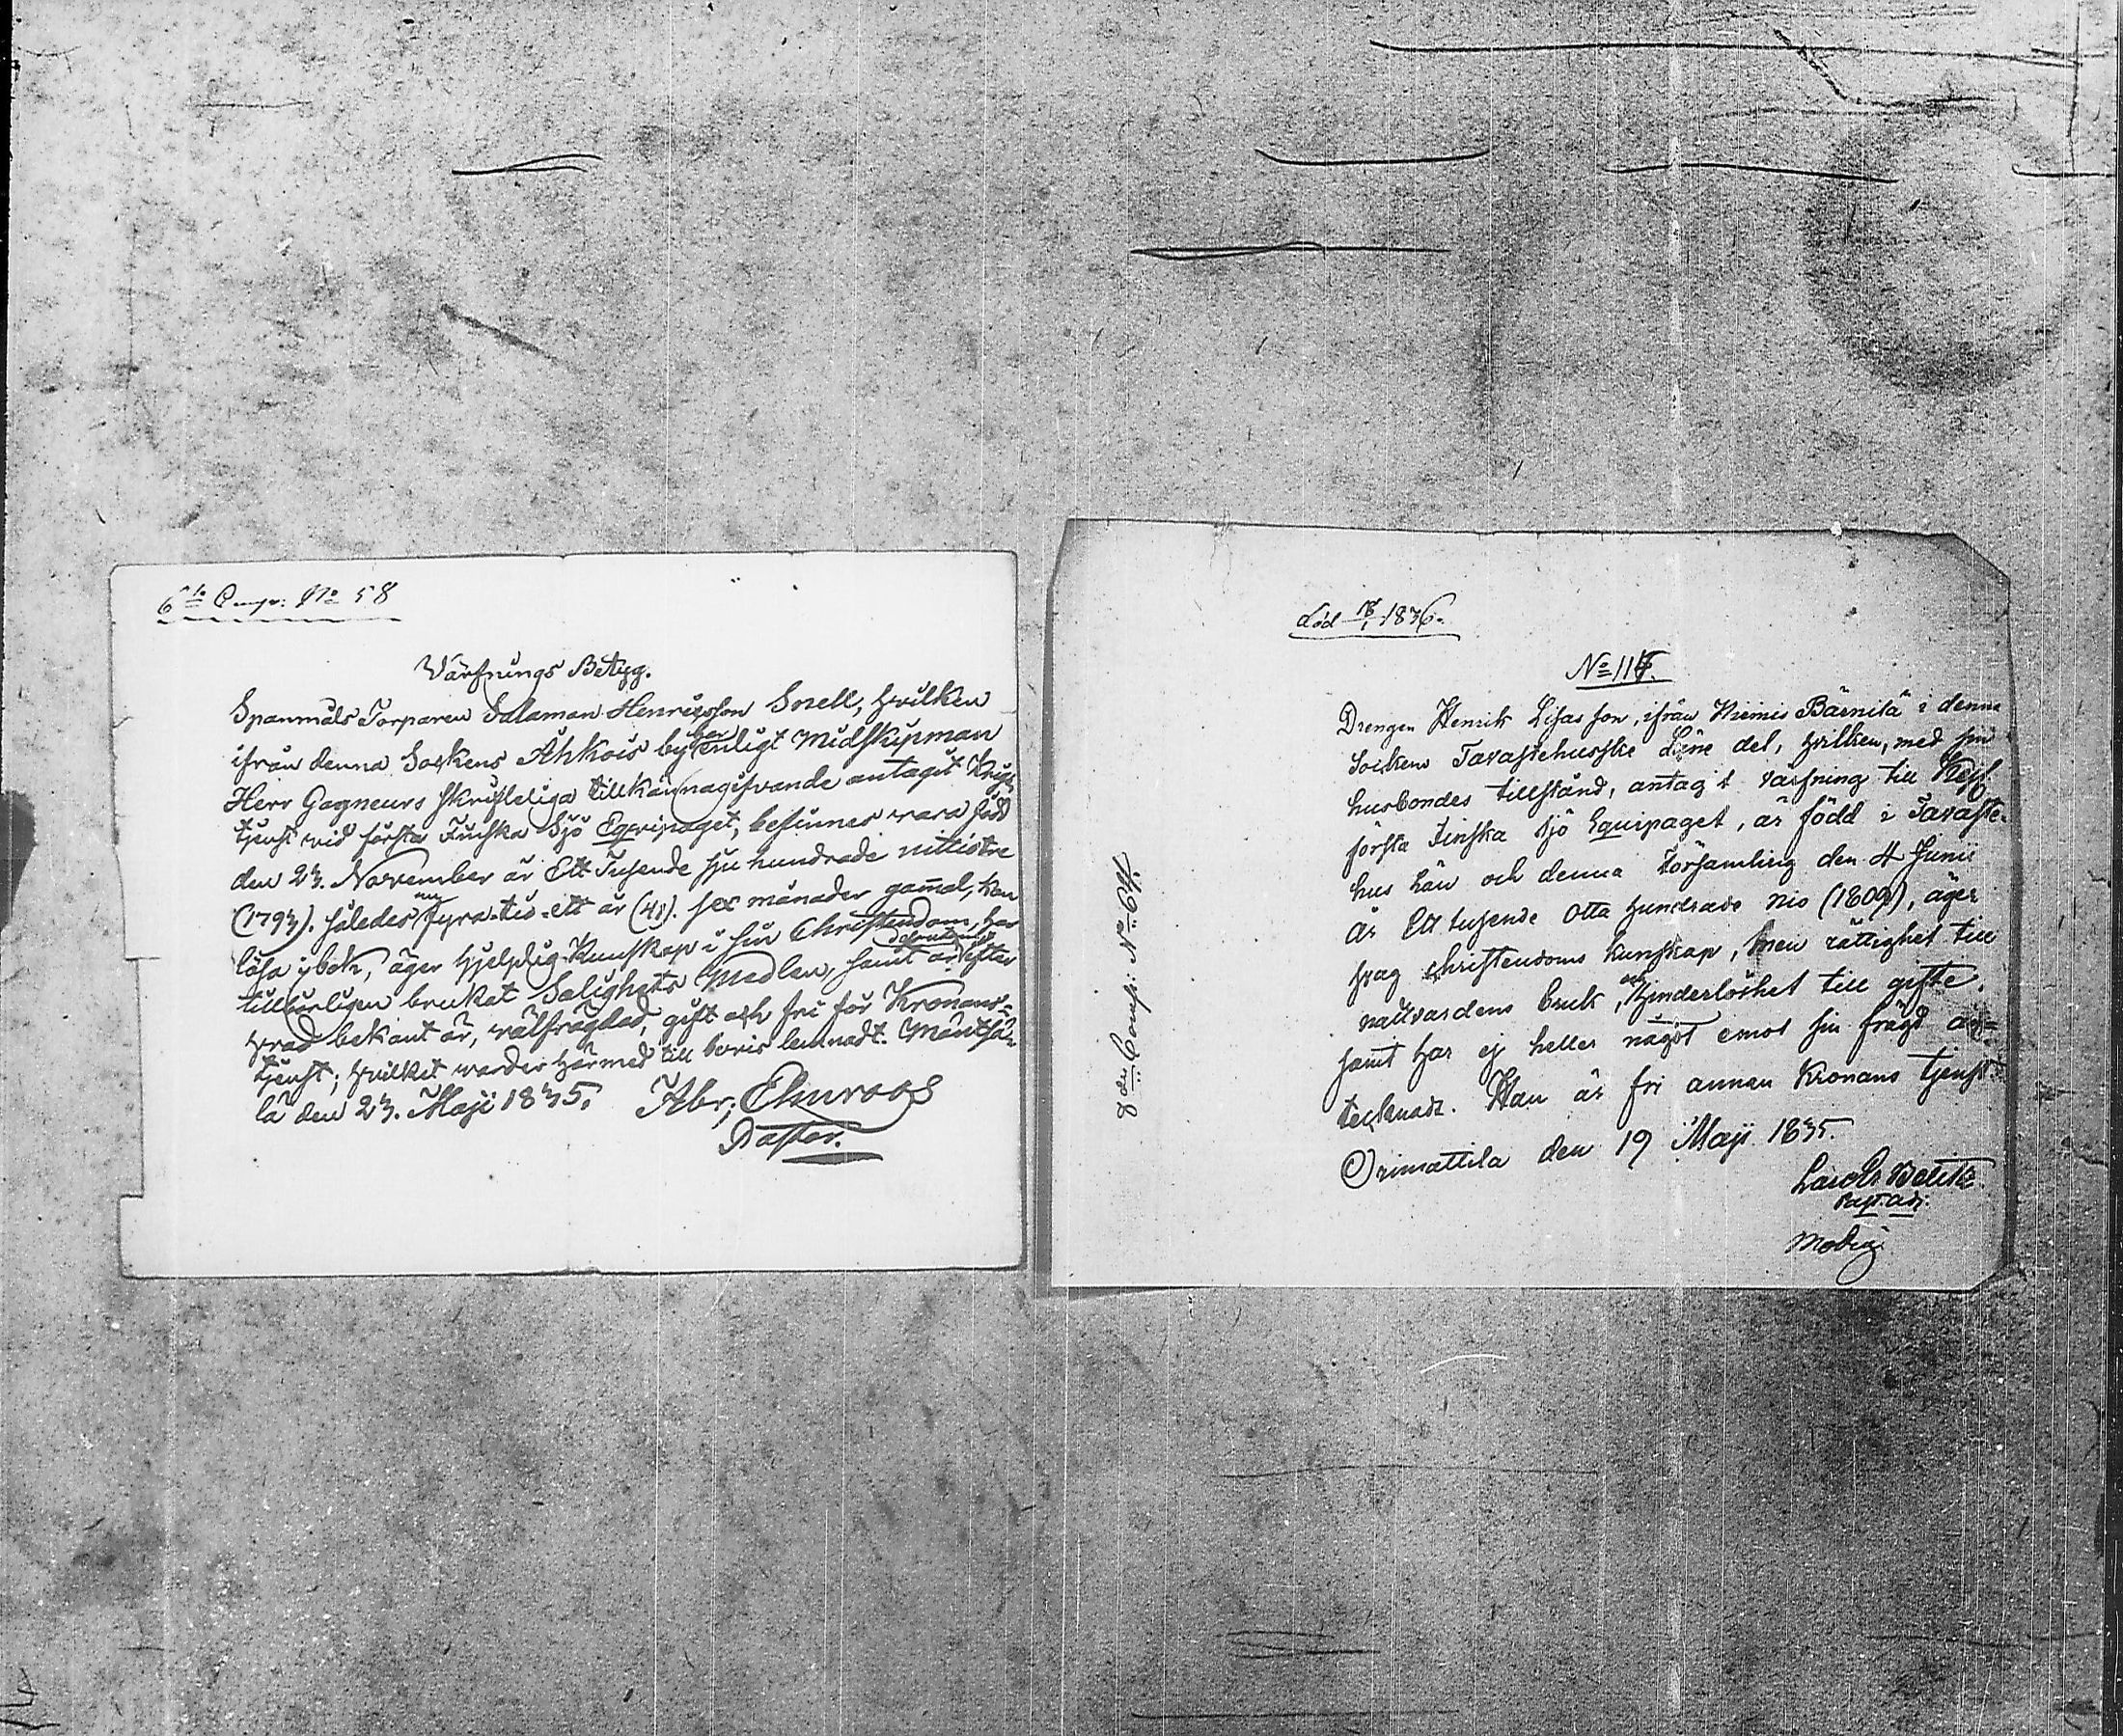 6te Comp: No 58
Värfnings Betyg.
Spanmåls Torparen Salaman Henricsson Snell, hvilken
ifrån denna Sockens Åhkois by har enligt Midskipman
Herr Gagneurs skrifteliga tillkännagifvande antagit Krigs
tjenst vid första Finska Sjö Eqvipaget, befinnes vara född
den 23. November år Ett Tusende sju hundrade nittiotre
(1793). således nu fyra-tio-ett år (41). sex månader gamal, kan
läsa i bok, äger hjelplig Kunskap i sin Christendom, har
tillbörligen brukat Salighets Medlen, samt är efter
hvad bekant är, välfrägdad, gift och fri för Kronans-
tjenst; hvilket varder härmed till bevis lemnadt. Mäntsä-
lä den 23. Maji 1835.
Abr; Elmroos
Pastor.
8de Comp: No 67
död 18/1 1836.
No 116.
Drengen Henrik Lisasson, ifrån Niemis Bärnilä i denna
Sockens Tavastehusske Läne del, hvilken, med sin
husbondes tillstånd, antagit värfning till Kejs.
första Finska Sjö Equipaget, är född i Tavaste-
hus Län och denna Församling den 4 Junii
år Ett tusende Otta hundrade nio (1809), äger
svag Christendoms kunskap, men rättighet till
nattvardens bruk, och hinderlöshet till gifte,
samt har ej heller något emot sin frägd an-
tecknadt. Han är fri annan Kronans tjenst.
Orimattila den 19 Maji 1835.
Past. adj.